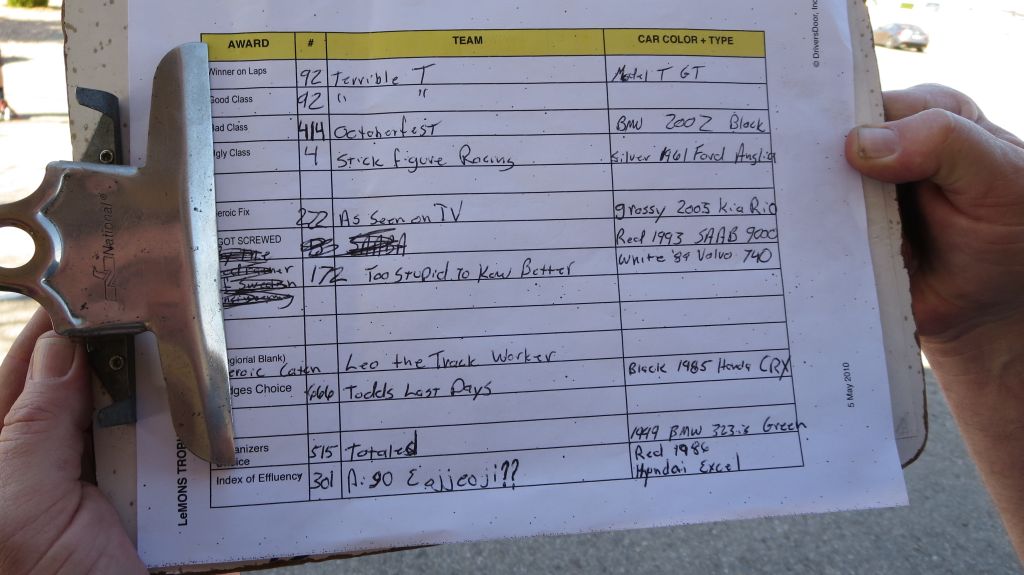 AWARD # TEAM CAR COLOR + TYPE
Winner on Laps 92 Terrible T Model T GT
Good Class 92 " "
Bad Class 414 Octoberfest BMW 2002 Black
Ugly Class 4 Stick figure Racing Silver 1961 Ford Anglia
eroic Fix 222 As Seen on TV grossy 2003 Kia Rio
GOT SCREWED Red 1993 SAAB 9000
172 Too Stupid To Kow Better White '89 Volvo 740
egional Blank)
eroic Catch Leo the Track Worker
dges Choice 666 Todds Last Days Black 1985 Honda CRX
anizers 515 Totaled 1999 BMW 323is Green
oice
Index of Effluency 301 Ai-go Eajjeoji?? Red 1986
Hyndai Excel
LeMONS TROP
5 May 2010
© DriversDoor, Inc
National®